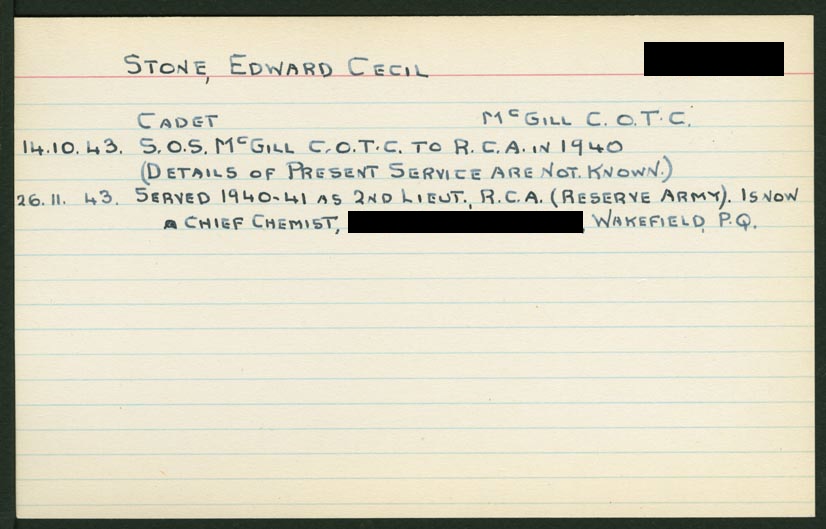 STONE, EDWARD CECIL
CADET McGILL C.O.T.C.
14.10.43. S.O.S. McGILL C.O.T.C. TO R.C.A. IN 1940
(DETAILS OF PRESENT SERVICE ARE NOT KNOWN.)
26.11.43. SERVED 1940-41 AS 2ND LIEUT., R.C.A. (RESERVE ARMY). IS NOW
CHIEF CHEMIST, , WAKEFIELD, P.Q.